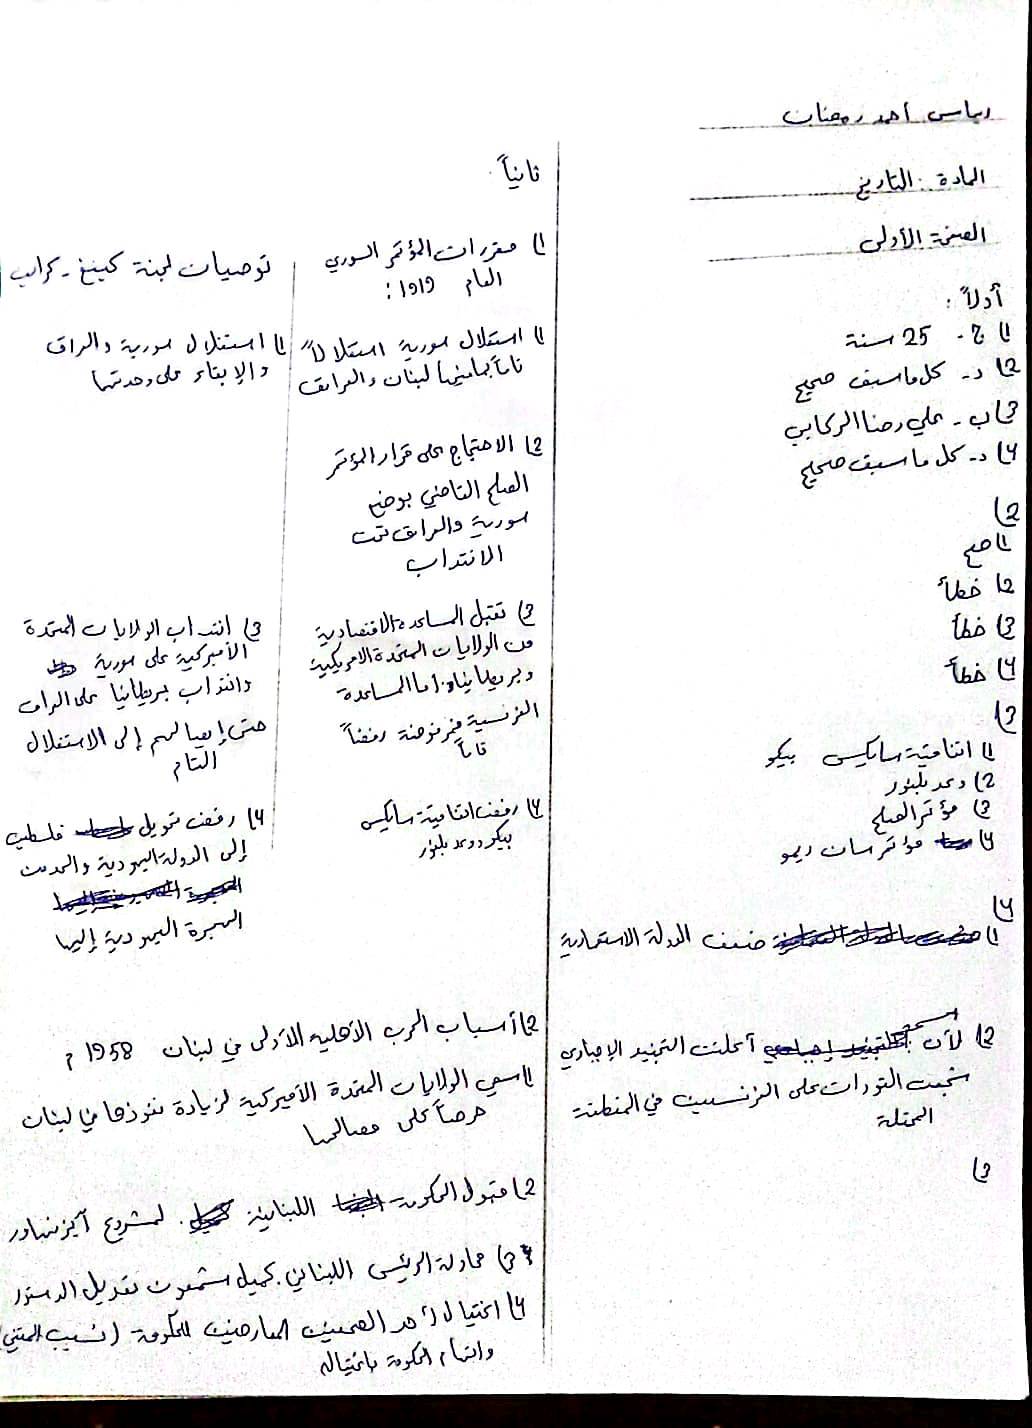 ريماس احمد رمضان
المادة : التاريخ
الصفحة الأولى
أولاً :
1) ج - 25 سنة
2) د - كل ما سبق صحيح
3) ب - علي رضا الركابي
4) د - كل ما سبق صحيح
2)
1) صح
2) خطأ
3) خطأ
4) خطأ
3)
1) اتفاقية سايكس بيكو
2) وعد بلفور
3) مؤتمر الصلح
4) مؤتمر سان ريمو
4)
1) ضعف الدولة الاستعمارية
2) لأن أعلنت التجنيد الإجباري
شجعت الثورات على الفرنسيين في المنطقة
المحتلة
3)
ثانياً :
1) مقررات المؤتمر السوري
العام 1919 :
1) استقلال سورية استقلالاً
تاماً بما فيها لبنان والعراق
2) الاحتجاج على قرار المؤتمر
الصلح القاضي بوضع
سورية والعراق تحت
الانتداب
3) تقبل المساعدة الاقتصادية
من الولايات المتحدة الامريكية
وبريطانيا، اما المساعدة
الفرنسية فمرفوضة رفضاً
تاماً
4) رفض اتفاقية سايكس
بيكو ووعد بلفور
توصيات لجنة كينغ - كراين
1) استقلال سورية والعراق
والإبقاء على وحدتها
3) انتداب الولايات المتحدة
الأميركية على سورية
وانتداب بريطانيا على العراق
حتى إيصالهم إلى الاستقلال
التام
4) رفض تحويل فلسطين
إلى الدولة اليهودية والحد من
الهجرة اليهودية إليها
2) أسباب الحرب الأهلية الأولى في لبنان 1958 م
1) سعي الولايات المتحدة الأميركية لزيادة نفوذها في لبنان
حرصاً على مصالحها
2) قبول الحكومة اللبنانية لمشروع آيزنهاور
3) محاولة الرئيس اللبناني كميل شمعون تعديل الدستور
4) اغتيال أحد الصحفيين المعارضين للحكومة (نسيب المتني)
واتهام الحكومة باغتياله